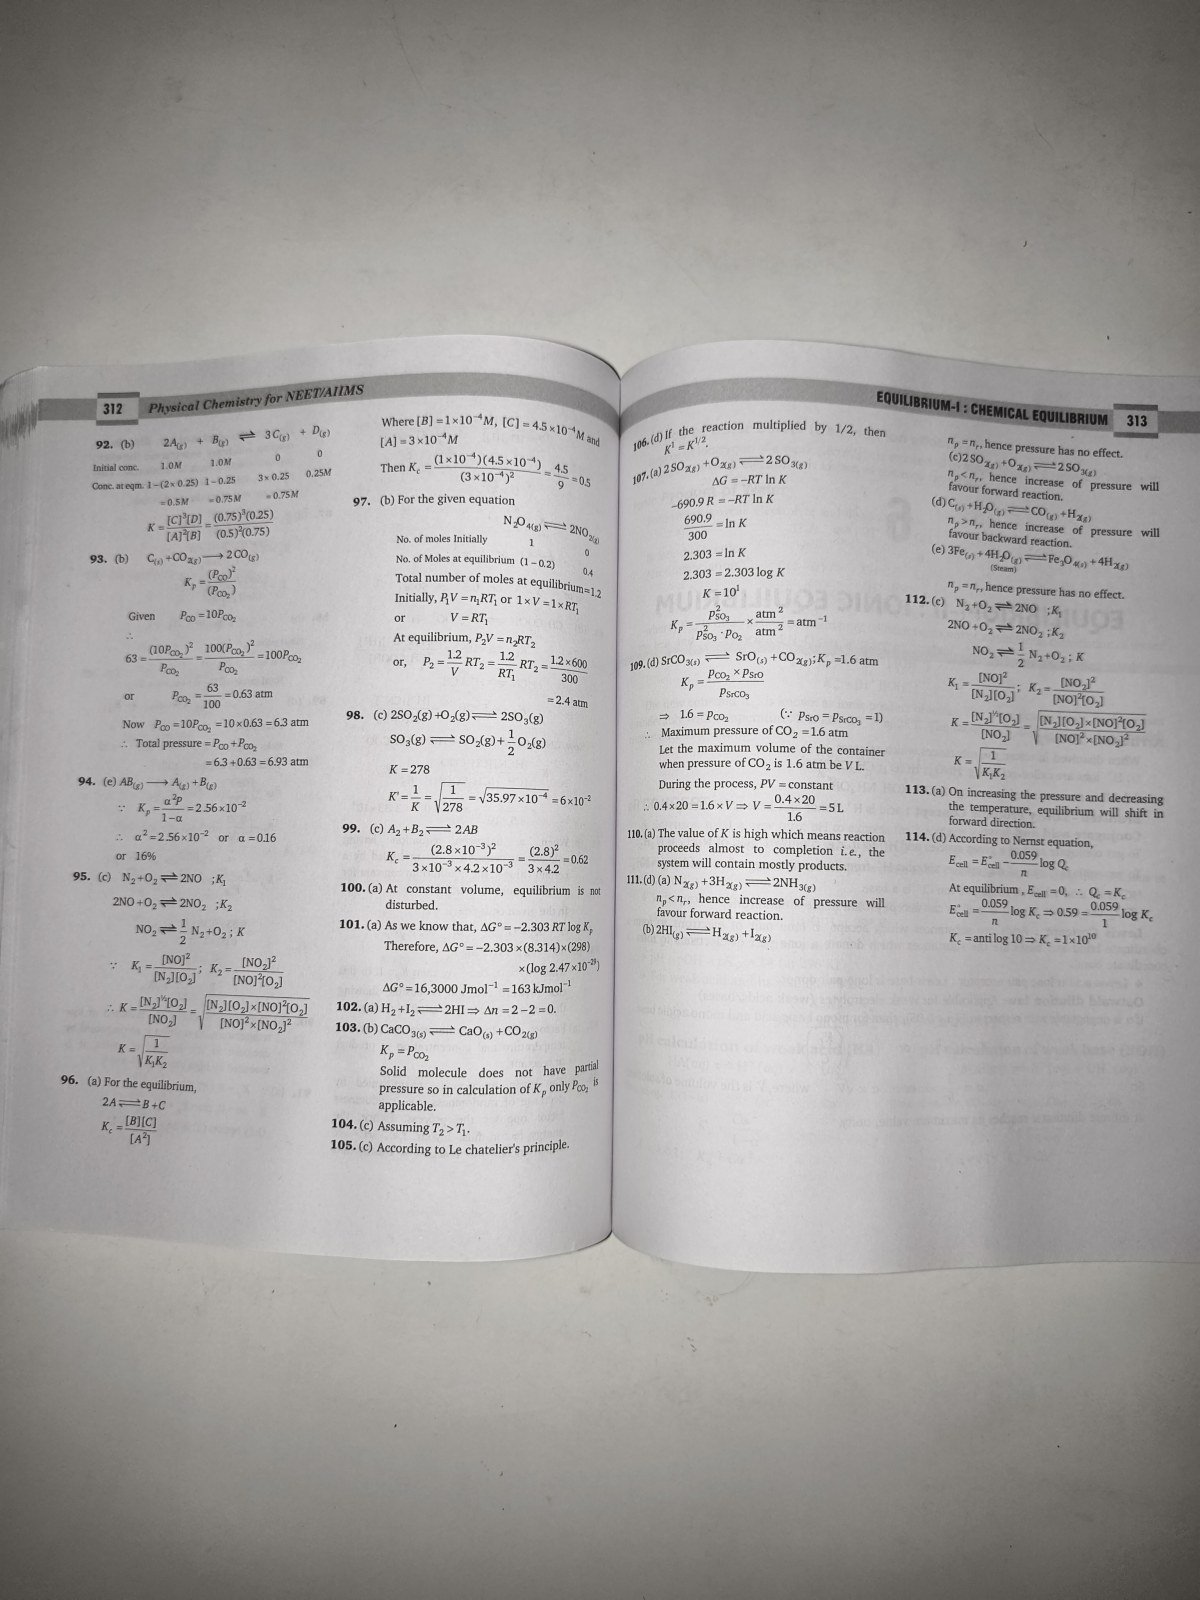 312 Physical Chemistry for NEET/AIIMS
92. (b) 2A(g) + B(g) ⇌ 3C(g) + D(g)
Initial conc. 1.0M 1.0M 0 0
Conc. at eqm. 1−(2×0.25) 1−0.25 3×0.25 0.25M
=0.5M =0.75M =0.75M
K = [C]³[D] / [A]²[B] = (0.75)³(0.25) / (0.5)²(0.75)
93. (b) C(s) + CO2(g) ⟶ 2CO(g)
Kp = (PCO)² / (PCO2)
Given PCO = 10PCO2
∴
63 = (10PCO2)² / PCO2 = 100(PCO2)² / PCO2 = 100PCO2
or PCO2 = 63/100 = 0.63 atm
Now PCO = 10PCO2 = 10×0.63 = 6.3 atm
∴ Total pressure = PCO + PCO2
= 6.3 + 0.63 = 6.93 atm
94. (e) AB(g) ⟶ A(g) + B(g)
∵ Kp = α²P / 1−α = 2.56×10⁻²
∴ α² = 2.56×10⁻² or α = 0.16
or 16%
95. (c) N2+O2 ⇌ 2NO ;K1
2NO+O2 ⇌ 2NO2 ;K2
NO2 ⇌ 1/2 N2+O2 ; K
∵ K1 = [NO]² / [N2][O2] ; K2 = [NO2]² / [NO]²[O2]
∴ K = [N2]^½[O2] / [NO2] = √([N2][O2]×[NO]²[O2] / [NO]²×[NO2]²)
K = √(1 / K1K2)
96. (a) For the equilibrium,
2A ⇌ B+C
Kc = [B][C] / [A²]
Where [B] = 1×10⁻⁴M, [C] = 4.5×10⁻⁴M and
[A] = 3×10⁻⁴M
Then Kc = (1×10⁻⁴)(4.5×10⁻⁴) / (3×10⁻⁴)² = 4.5/9 = 0.5
97. (b) For the given equation
N2O4(g) ⇌ 2NO2(g)
No. of moles Initially 1 0
No. of Moles at equilibrium (1−0.2) 0.4
Total number of moles at equilibrium=1.2
Initially, P1V = n1RT1 or 1×V = 1×RT1
or V = RT1
At equilibrium, P2V = n2RT2
or, P2 = 1.2/V RT2 = 1.2/RT1 RT2 = 1.2×600 / 300
= 2.4 atm
98. (c) 2SO2(g)+O2(g) ⇌ 2SO3(g)
SO3(g) ⇌ SO2(g)+1/2 O2(g)
K = 278
K' = 1/K = √(1/278) = √35.97×10⁻⁴ = 6×10⁻²
99. (c) A2+B2 ⇌ 2AB
Kc = (2.8×10⁻³)² / 3×10⁻³×4.2×10⁻³ = (2.8)² / 3×4.2 = 0.62
100. (a) At constant volume, equilibrium is not
disturbed.
101. (a) As we know that, ΔG° = −2.303 RT log Kp
Therefore, ΔG° = −2.303×(8.314)×(298)
×(log 2.47×10⁻²⁹)
ΔG° = 16,3000 Jmol⁻¹ = 163 kJmol⁻¹
102. (a) H2+I2 ⇌ 2HI ⇒ Δn = 2−2 = 0.
103. (b) CaCO3(s) ⇌ CaO(s) + CO2(g)
Kp = PCO2
Solid molecule does not have partial
pressure so in calculation of Kp only PCO2 is
applicable.
104. (c) Assuming T2 > T1.
105. (c) According to Le chatelier's principle.
EQUILIBRIUM-I : CHEMICAL EQUILIBRIUM 313
106. (d) If the reaction multiplied by 1/2, then
K¹ = K^1/2.
107. (a) 2SO2(g) + O2(g) ⇌ 2SO3(g)
ΔG = −RT ln K
−690.9 R = −RT ln K
690.9/300 = ln K
2.303 = ln K
2.303 = 2.303 log K
K = 10¹
Kp = p²SO3 / p²SO3 · PO2 × atm² / atm² = atm⁻¹
109. (d) SrCO3(s) ⇌ SrO(s) + CO2(g); Kp = 1.6 atm
Kp = PCO2 × PSrO / PSrCO3
⇒ 1.6 = PCO2 (∵ PSrO = PSrCO3 = 1)
∴ Maximum pressure of CO2 = 1.6 atm
Let the maximum volume of the container
when pressure of CO2 is 1.6 atm be V L.
During the process, PV = constant
∴ 0.4×20 = 1.6×V ⇒ V = 0.4×20 / 1.6 = 5L
110. (a) The value of K is high which means reaction
proceeds almost to completion i.e., the
system will contain mostly products.
111. (d) (a) N2(g) + 3H2(g) ⇌ 2NH3(g)
np < nr, hence increase of pressure will
favour forward reaction.
(b) 2HI(g) ⇌ H2(g) + I2(g)
np = nr, hence pressure has no effect.
(c) 2SO2(g) + O2(g) ⇌ 2SO3(g)
np < nr, hence increase of pressure will
favour forward reaction.
(d) C(s) + H2O(g) ⇌ CO(g) + H2(g)
np > nr, hence increase of pressure will
favour backward reaction.
(e) 3Fe(s) + 4H2O(g) ⇌ Fe3O4(s) + 4H2(g)
(Steam)
np = nr, hence pressure has no effect.
112. (c) N2+O2 ⇌ 2NO ;K1
2NO+O2 ⇌ 2NO2 ;K2
NO2 ⇌ 1/2 N2+O2 ; K
K1 = [NO]² / [N2][O2] ; K2 = [NO2]² / [NO]²[O2]
K = [N2]^½[O2] / [NO2] = √([N2][O2]×[NO]²[O2] / [NO]²×[NO2]²)
K = √(1 / K1K2)
113. (a) On increasing the pressure and decreasing
the temperature, equilibrium will shift in
forward direction.
114. (d) According to Nernst equation,
Ecell = E°cell − 0.059/n log Qc
At equilibrium, Ecell = 0, ∴ Qc = Kc
E°cell = 0.059/n log Kc ⇒ 0.59 = 0.059/1 log Kc
Kc = anti log 10 ⇒ Kc = 1×10¹⁰